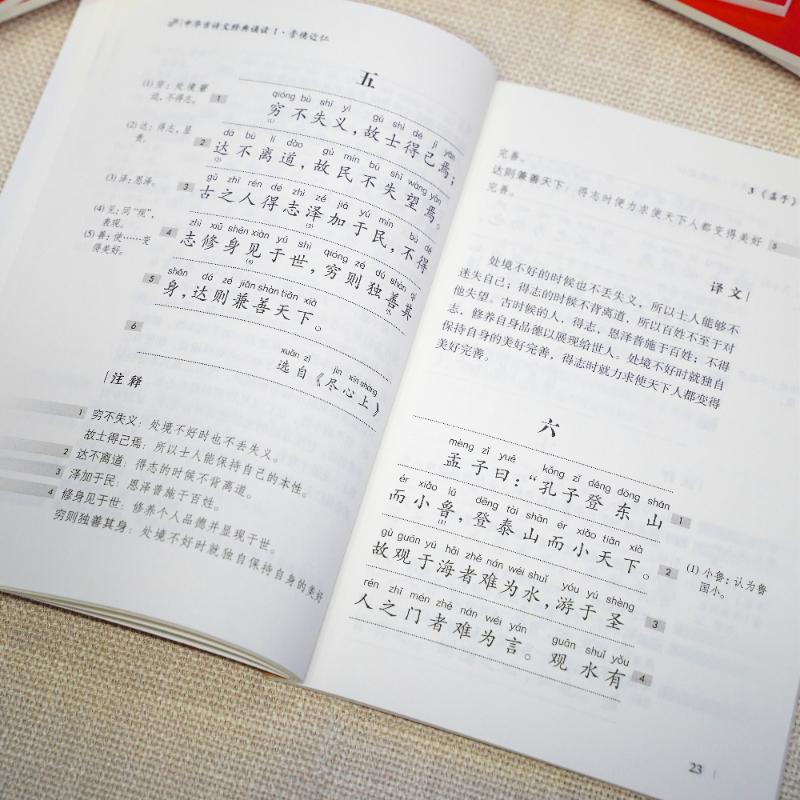 中华古诗文经典诵读1·崇德近仁
五
(1) 穷：处境窘
迫，不得志。
(2) 达：得志，显
贵。
(3) 泽：恩泽。
(4) 见：同“现”，
表现。
(5) 善：使……变
得美好。
1
qióng bù shī yì gù shì dé jǐ yān
穷不失义，故士得己焉；
(1)
2
dá bù lí dào gù mín bù shī wàng yān
达不离道，故民不失望焉。
(2)
3
gǔ zhī rén dé zhì zé jiā yú mín bù dé
古之人得志泽加于民，不得
(3)
4
zhì xiū shēn xiàn yú shì qióng zé dú shàn qí
志修身见于世，穷则独善其
(4) (5)
5
shēn dá zé jiān shàn tiān xià
身，达则兼善天下。
6
xuǎn zì jìn xīn shàng
选自《尽心上》
注释
1 穷不失义：处境不好时也不丢失义。
故士得己焉：所以士人能保持自己的本性。
2 达不离道：得志的时候不背离道。
3 泽加于民：恩泽普施于百姓。
4 修身见于世：修养个人品德并显现于世。
穷则独善其身：处境不好时就独自保持自身的美好
3《孟子》
完善。
达则兼善天下：得志时便力求使天下人都变得美好 5
完善。
译文
处境不好的时候也不丢失义，所以士人能够不
迷失自己；得志的时候不背离道，所以百姓不至于对
他失望。古时候的人，得志，恩泽普施于百姓；不得
志，修养自身品德以展现给世人。处境不好时就独自
保持自身的美好完善，得志时就力求使天下人都变得
美好完善。
六
mèng zǐ yuē kǒng zǐ dēng dōng shān
孟子曰：“孔子登东山
1
ér xiǎo lǔ dēng tài shān ér xiǎo tiān xià
而小鲁，登泰山而小天下。
(1)
2
(1) 小鲁：认为鲁
国小。
gù guān yú hǎi zhě nán wéi shuǐ yóu yú shèng
故观于海者难为水，游于圣
3
rén zhī mén zhě nán wéi yán guān shuǐ yǒu
人之门者难为言。观水有
4
23